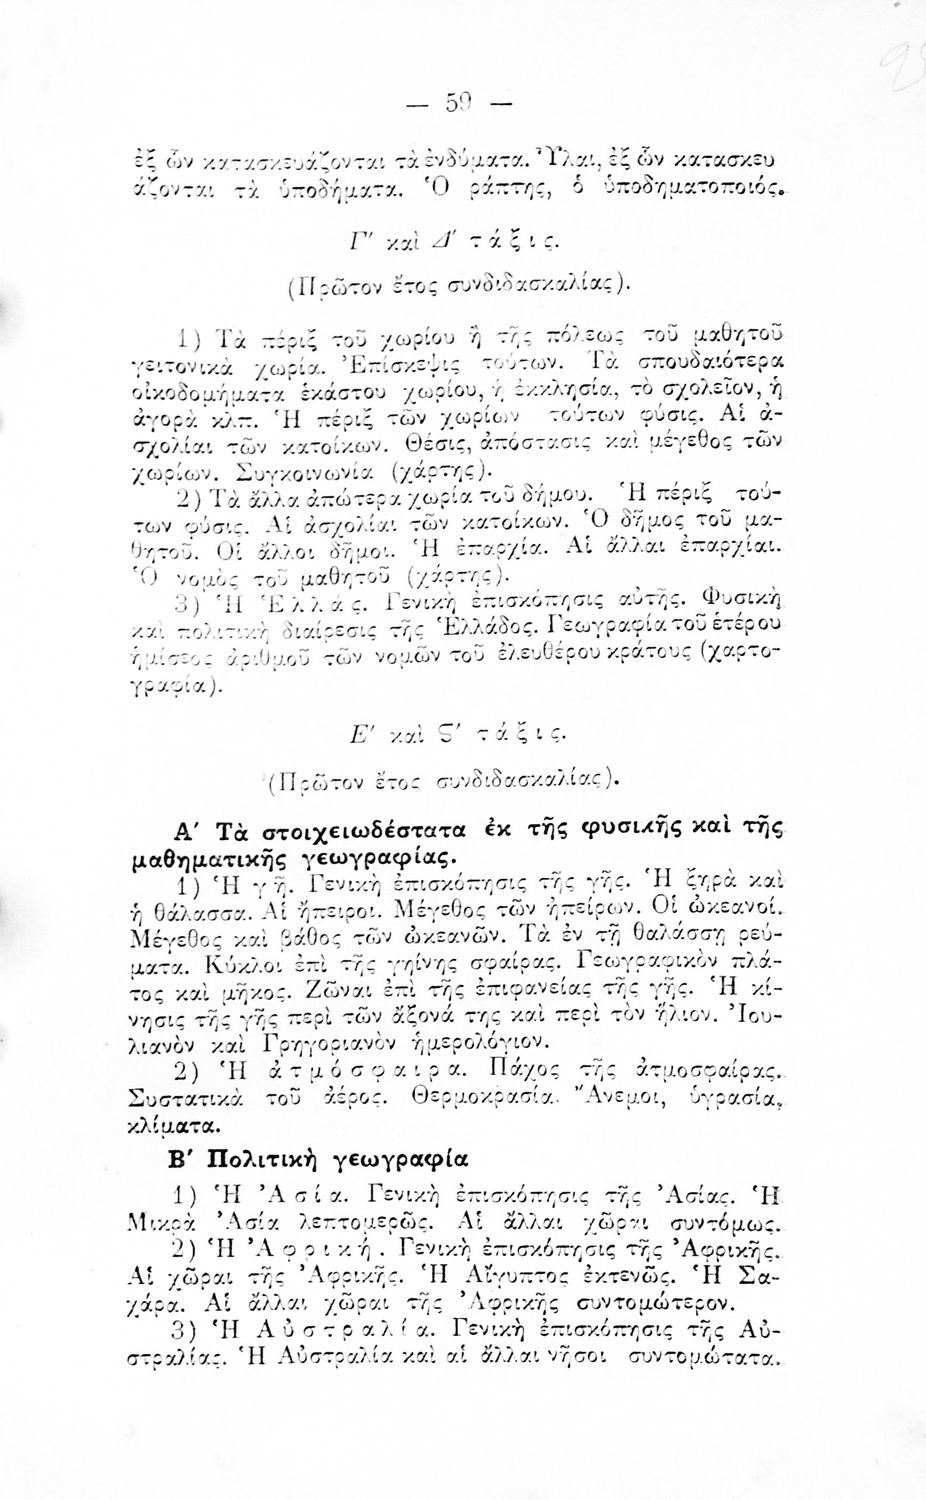 — 59 —
ἐξ ὧν κατασκευάζονται τὰ ἐνδύματα. Ὕλαι, ἐξ ὧν κατασκευ
άζονται τὰ ὑποδήματα. Ὁ ράπτης, ὁ ὑποδηματοποιός.
Γ′ καὶ Δ′ τάξις.
(Πρῶτον ἔτος συνδιδασκαλίας).
1) Τὰ πέριξ τοῦ χωρίου ἢ τῆς πόλεως τοῦ μαθητοῦ
γειτονικὰ χωρία. Ἐπίσκεψις τούτων. Τὰ σπουδαιότερα
οἰκοδομήματα ἑκάστου χωρίου, ἡ ἐκκλησία, τὸ σχολεῖον, ἡ
ἀγορὰ κλπ. Ἡ πέριξ τῶν χωρίων τούτων φύσις. Αἱ ἀ-
σχολίαι τῶν κατοίκων. Θέσις, ἀπόστασις καὶ μέγεθος τῶν
χωρίων. Συγκοινωνία (χάρτης).
2) Τὰ ἄλλα ἀπώτερα χωρία τοῦ δήμου. Ἡ πέριξ τού-
των φύσις. Αἱ ἀσχολίαι τῶν κατοίκων. Ὁ δῆμος τοῦ μα-
θητοῦ. Οἱ ἄλλοι δῆμοι. Ἡ ἐπαρχία. Αἱ ἄλλαι ἐπαρχίαι.
Ὁ νομὸς τοῦ μαθητοῦ (χάρτης).
3) Ἡ Ἑλλάς. Γενικὴ ἐπισκόπησις αὐτῆς. Φυσικὴ
καὶ πολιτικὴ διαίρεσις τῆς Ἑλλάδος. Γεωγραφία τοῦ ἑτέρου
ἡμίσεος ἀριθμοῦ τῶν νομῶν τοῦ ἐλευθέρου κράτους (χαρτο-
γραφία).
Ε′ καὶ Ϛ′ τάξις.
(Πρῶτον ἔτος συνδιδασκαλίας).
Α′ Τὰ στοιχειωδέστατα ἐκ τῆς φυσικῆς καὶ τῆς
μαθηματικῆς γεωγραφίας.
1) Ἡ γῆ. Γενικὴ ἐπισκόπησις τῆς γῆς. Ἡ ξηρὰ καὶ
ἡ θάλασσα. Αἱ ἤπειροι. Μέγεθος τῶν ἠπείρων. Οἱ ὠκεανοί.
Μέγεθος καὶ βάθος τῶν ὠκεανῶν. Τὰ ἐν τῇ θαλάσσῃ ρεύ-
ματα. Κύκλοι ἐπὶ τῆς γηίνης σφαίρας. Γεωγραφικὸν πλά-
τος καὶ μῆκος. Ζῶναι ἐπὶ τῆς ἐπιφανείας τῆς γῆς. Ἡ κί-
νησις τῆς γῆς περὶ τῶν ἄξονά της καὶ περὶ τὸν ἥλιον. Ἰου-
λιανὸν καὶ Γρηγοριανὸν ἡμερολόγιον.
2) Ἡ ἀτμόσφαιρα. Πάχος τῆς ἀτμοσφαίρας.
Συστατικὰ τοῦ ἀέρος. Θερμοκρασία. Ἄνεμοι, ὑγρασία,
κλίματα.
Β′ Πολιτικὴ γεωγραφία
1) Ἡ Ἀσία. Γενικὴ ἐπισκόπησις τῆς Ἀσίας. Ἡ
Μικρὰ Ἀσία λεπτομερῶς. Αἱ ἄλλαι χῶραι συντόμως.
2) Ἡ Ἀφρική. Γενικὴ ἐπισκόπησις τῆς Ἀφρικῆς.
Αἱ χῶραι τῆς Ἀφρικῆς. Ἡ Αἴγυπτος ἐκτενῶς. Ἡ Σα-
χάρα. Αἱ ἄλλαι χῶραι τῆς Ἀφρικῆς συντομώτερον.
3) Ἡ Αὐστραλία. Γενικὴ ἐπισκόπησις τῆς Αὐ-
στραλίας. Ἡ Αὐστραλία καὶ αἱ ἄλλαι νῆσοι συντομώτατα.